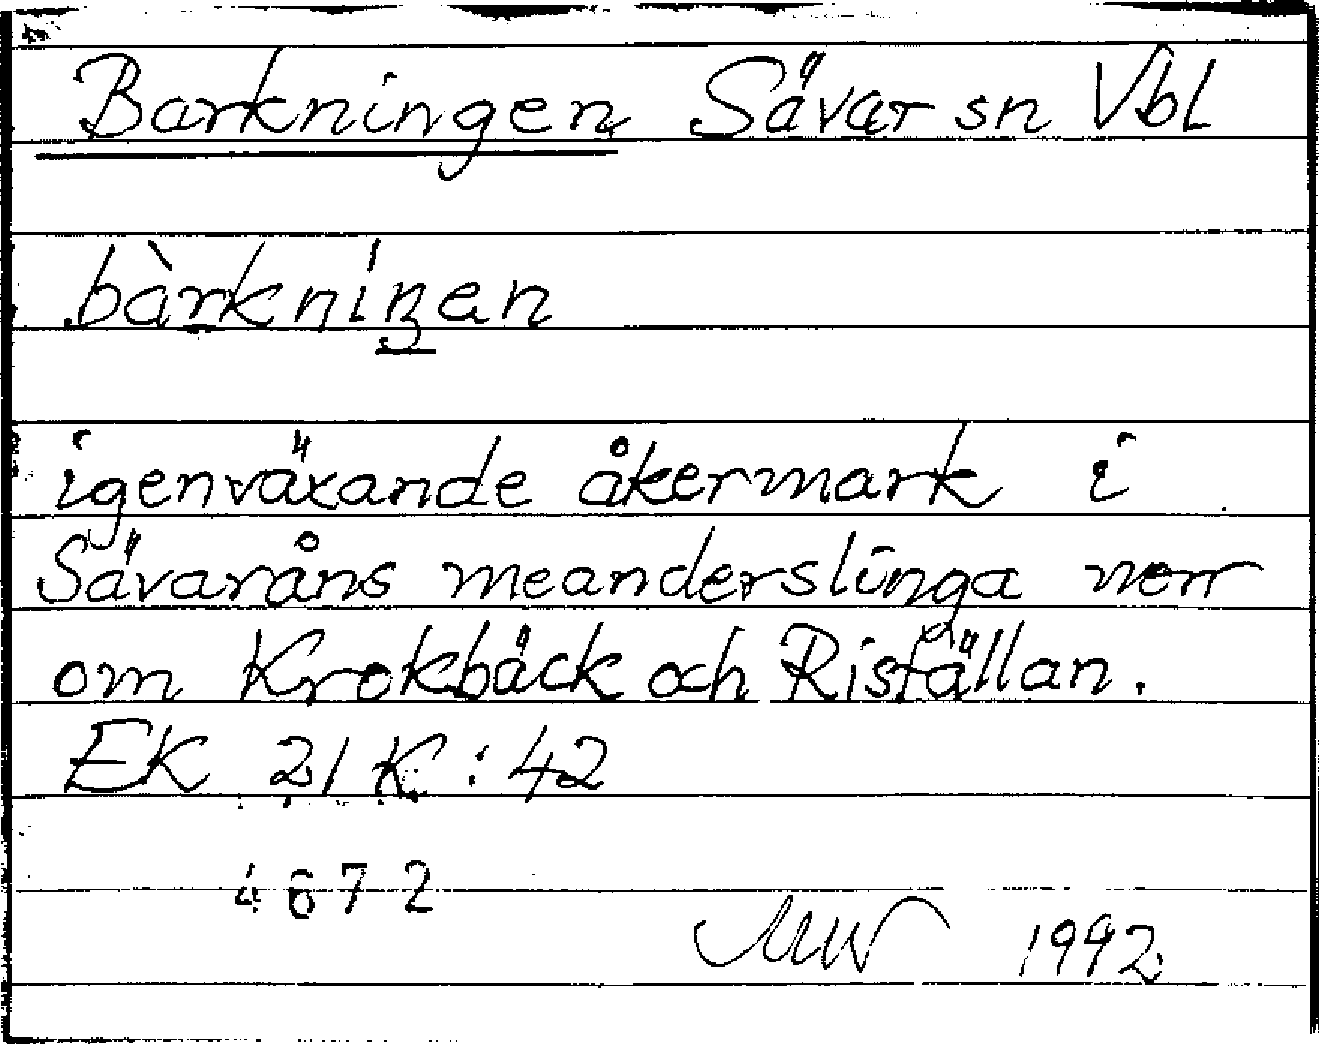 Barkningen Sävar sn Vbl
bàrkníŋen
igenväxande åkermark i
Sävaråns meanderslinga norr
om Krokbäck och Risfällan.
EK 21 K : 42
4672
MW 1992